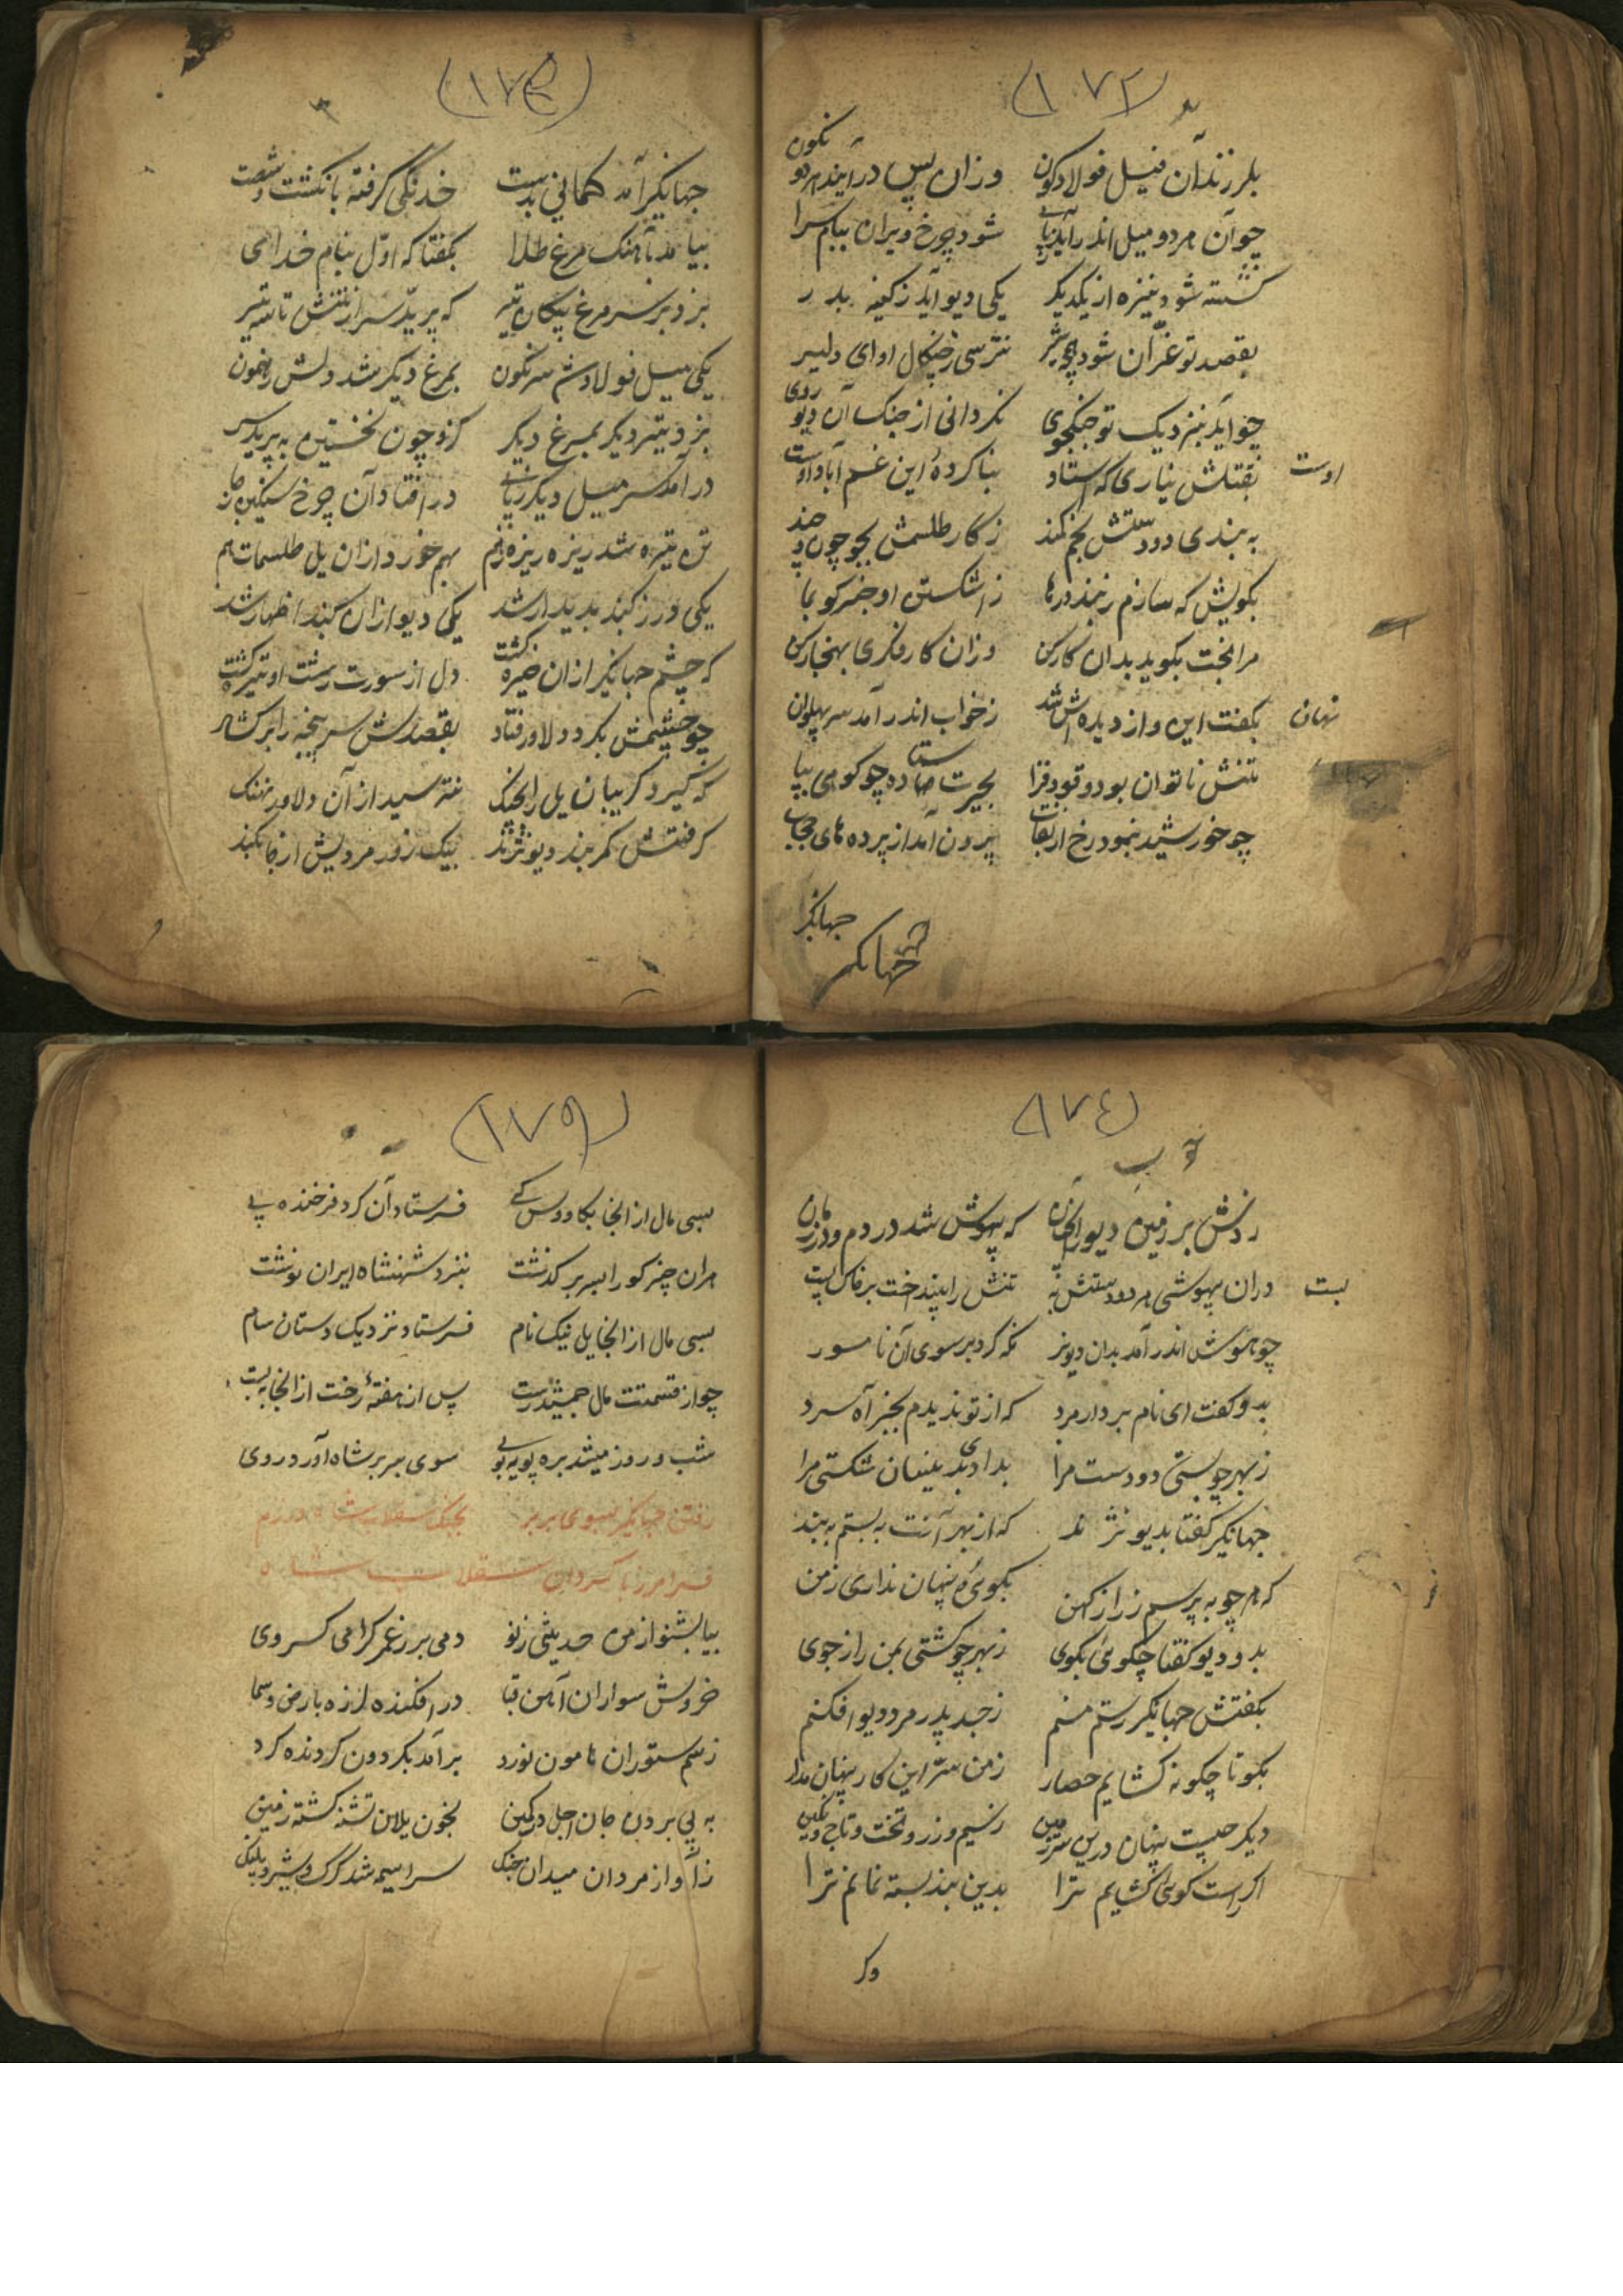 (۱۷۲)
بلرزند آن فیل فولاد کون وزان پس در آیند هر دو نکون
چو آن هر دو میل اندر آید بپا شود چرخ ویران بیام سرا
شود نیزه از یکدیکر یکی دیو آید ز کینه بدر
بقصد تو غران شود همچو شیر نترسی ز چنکال او ای دلیر
چو آید بنزدیک تو جنکجوی نکردانی از جنک آن دیو روی
بقتلش نیاری که استاد اوست بنا کردهٔ این غم آباد اوست
به بندی دو دستش بخم کمند ز کار طلسمش بجو چون و چند
بکویش که سازم ز بند درها ز اشکستن او خبر کو بما
هر آنچت بکوید بدان کار کن وزان کار فکری بهنجار کن
بکفت این و از دیده اش شد نهان ز خواب اندر آمد سر پهلوان
تنش ناتوان بود و قودقرا بحیرت ستاده چو کوهی بپا
چو خورشید بنمود رخ از نقاب برون آمد از پرده های حجاب
جهانکیر
جهانکیر
(۱۷۳)
جهانکیر آمد کمانی بدست خدنکی کرفته بانکشت و شصت
بیامد بآهنک مرغ طلا بکفتا که اول بنام خدای
بزد بر سر مرغ پیکان تیر که پرید سر از تنش تا بتیر
یکی میل فولاد شد سرنکون بمرغ دیکر شد دلش رهنمون
بزد تیر دیکر بمرغ دیکر کزو چون نخستین به پرید سر
در آمد سر میل دیکر ز پای در افتاد آن چرخ سنکین ز جای
تن تیره شد ریزه ریزه ز هم بهم خورد ازان یل طلسمات هم
یکی در ز کنبد پدیدار شد یکی دیو ازان کنبد اظهار شد
که چشم جهانکیر ازان خیره کشت دل از سورت زشت او تیره کشت
چو چشمش بکرد دلاور فتاد بقصدش سر پنجه را بر کشاد
که کیرد کریبان یل را بچنک نترسید از آن دلاور نهنک
کرفتش کمربند دیو نژند بیک زور مردیش از جا بکند
(۱۷٤)
زدش بر زمین دیو را آنچنان که بیهوش شد در دم و در زمان
دران بیهوشی هر دو دستش به بست تنش را بینداخت بر خاک پست
چو با هوش اندر آمد بدان دیو نر نکه کرد بر سوی آن نامور
بدو کفت ای نام بردار مرد که از تو ندیدم بجز آه سرد
ز بهر چه بستی دو دست مرا بدادی بدینسان شکستی مرا
جهانکیر کفتا بدیو نژند که از بهر آنت به بستم به بند
که هر چه بپرسم ز راز کهن بکوئی و پنهان نداری ز من
بدو دیو کفتا چکوئی بکوی ز بهر چه کشتی بمن راز جوی
بکفتش جهانکیر رستم منم ز جد و پدر مرد دیو افکنم
بکو تا چکونه کشایم حصار ز من سر این کار پنهان مدار
دیکر چیست پنهان درین سرزمین ز سیم و زر و تخت و تاج و نکین
اکر راست کوئی کشایم ترا بدین بند بسته نمانم ترا
وکر
(۱۷۵)
بسی مال از آنجا بکاووس کی فرستاد آن کرد فرخنده پی
مران چیز کو را بسر بر کذشت بنزد شهنشاه ایران نوشت
بسی مال از آنجا یل نیک نام فرستاد نزدیک دستان سام
چو از قسمت مال جمشید رست پس از هفتهٔ رخت از آنجا به بست
شب و روز میشد بره پویه پوی سوی بربر شاه آورد روی
رفتن جهانکیر بسوی بربر بجنک سقلاب شاه
فرامرز با کردان سقلاب شاه
بیا بشنو از من حدیثی ز نو دمی بر رغم کرامی کسروی
خروش سواران آهن قبا در افکنده لرزه بارض و سما
ز سم ستوران هامون نورد بر آمد بکردون کردنده کرد
به پی بردن جان اجل در کمین بخون یلان تشنه کشته زمین
ز آواز مردان میدان جنک سراسیمه شد کرک و شیر و پلنک